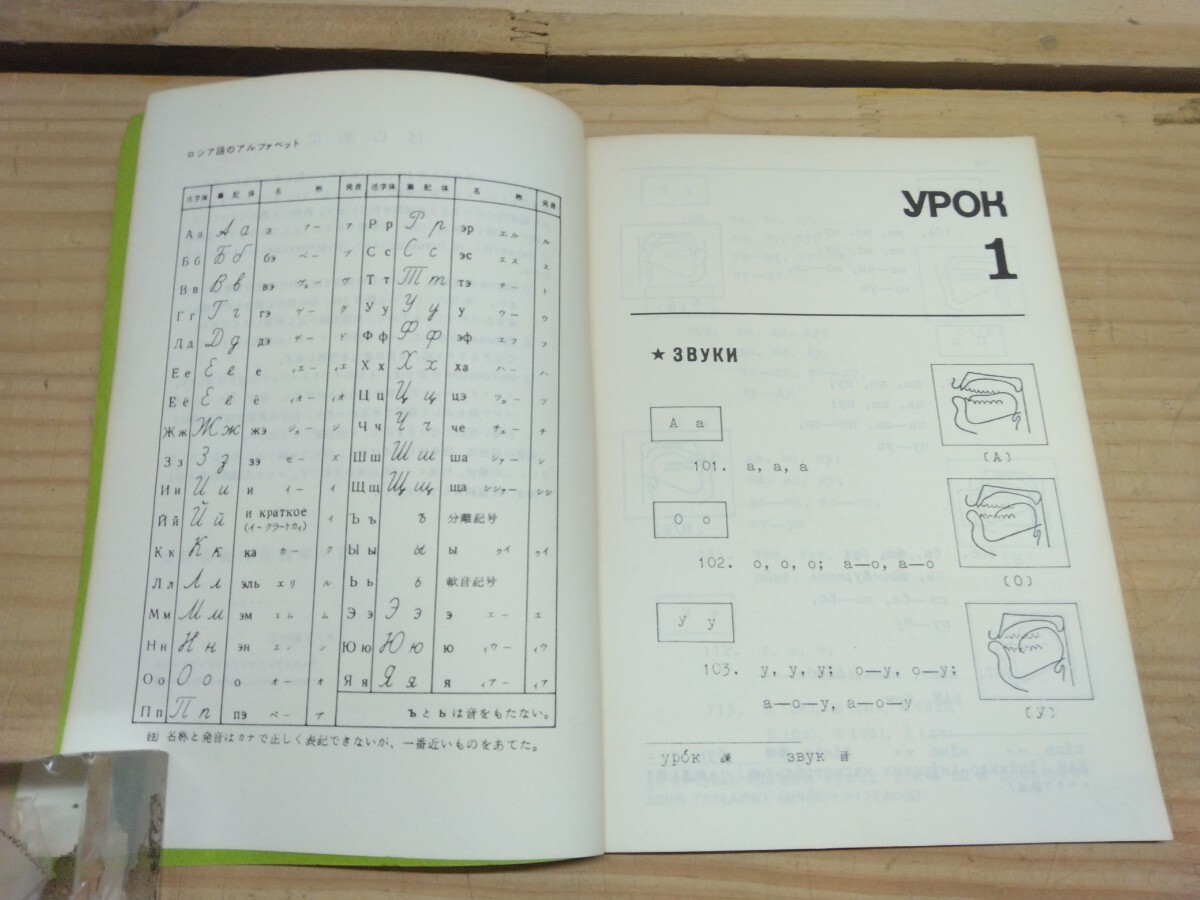 ロシア語のアルファベット
活字体 筆記体 名 称 発音 活字体 筆記体 名 称 発音
А а А а а アー ア Р р Р р эр エル ル
Б б Б б бэ ベー ブ С с С с эс エス ス
В в В в вэ ヴェー ヴ Т т Т т тэ テー ト
Г г Г г гэ ゲー グ У у У у у ウー ウ
Д д Д д дэ デー ド Ф ф Ф ф эф エフ フ
Е е Е е е イエー イエ Х х Х х ха ハー ハ
Е ё Е е ё イオー イオ Ц ц Ц ц цэ ツェー ツ
Ж ж Ж ж жэ ジェー ジ Ч ч Ч ч че チェー チ
З з З з зэ ゼー ズ Ш ш Ш ш ша シァー シ
И и И и и イー イ Щ щ Щ щ ща シシァー シシ
Й й Й й и краткое (イークラートカィ) ィ Ъ ъ ъ 分離記号
К к К к ка カー ク Ы ы ы ы ウイ ウイ
Л л Л л эль エリ ル Ь ь ь 軟音記号
М м М м эм エム ム Э э Э э э エー エ
Н н Н н эн エン ン Ю ю Ю ю ю イウー イウ
О о О о о オー オ Я я Я я я イアー イア
П п П п пэ ペー プ ъ と ь は音をもたない。
(注) 名称と発音はカナで正しく表記できないが、一番近いものをあてた。
УРОК
1
★ ЗВУКИ
А а
101. а, а, а
(А)
О о
102. о, о, о; а—о, а—о
(О)
У у
103. у, у, у; о—у, о—у;
а—о—у, а—о—у
(У)
уро́к 課 звук 音